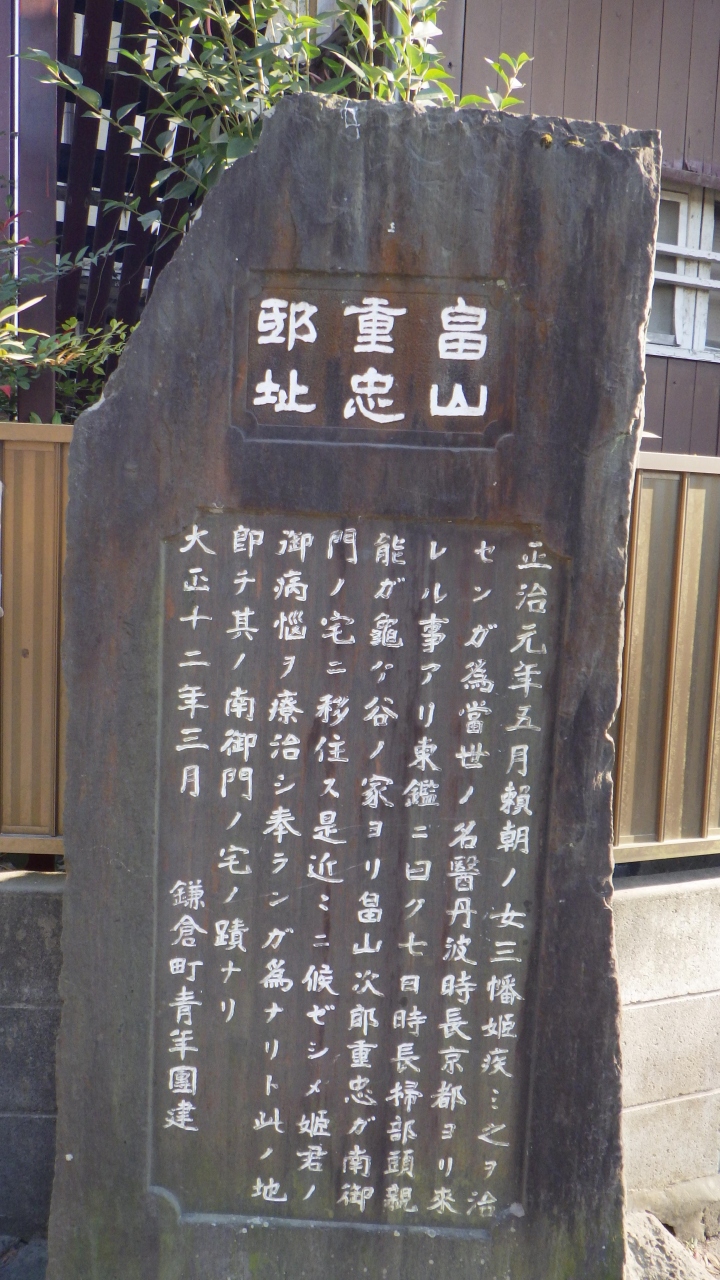 畠山
重忠
邸址
正治元年五月頼朝ノ女三幡姫疾ミ之ヲ治
センガ為當世ノ名醫丹波時長京都ヨリ来
レル事アリ東鑑ニ曰ク七日時長掃部頭親
能ガ龜ヶ谷ノ家ヨリ畠山次郎重忠ガ南御
門ノ宅ニ移住ス是近ミニ候ゼシメ姫君ノ
御病悩ヲ療治シ奉ランガ為ナリト此ノ地
即チ其ノ南御門ノ宅ノ蹟ナリ
大正十二年三月 鎌倉町青年團建